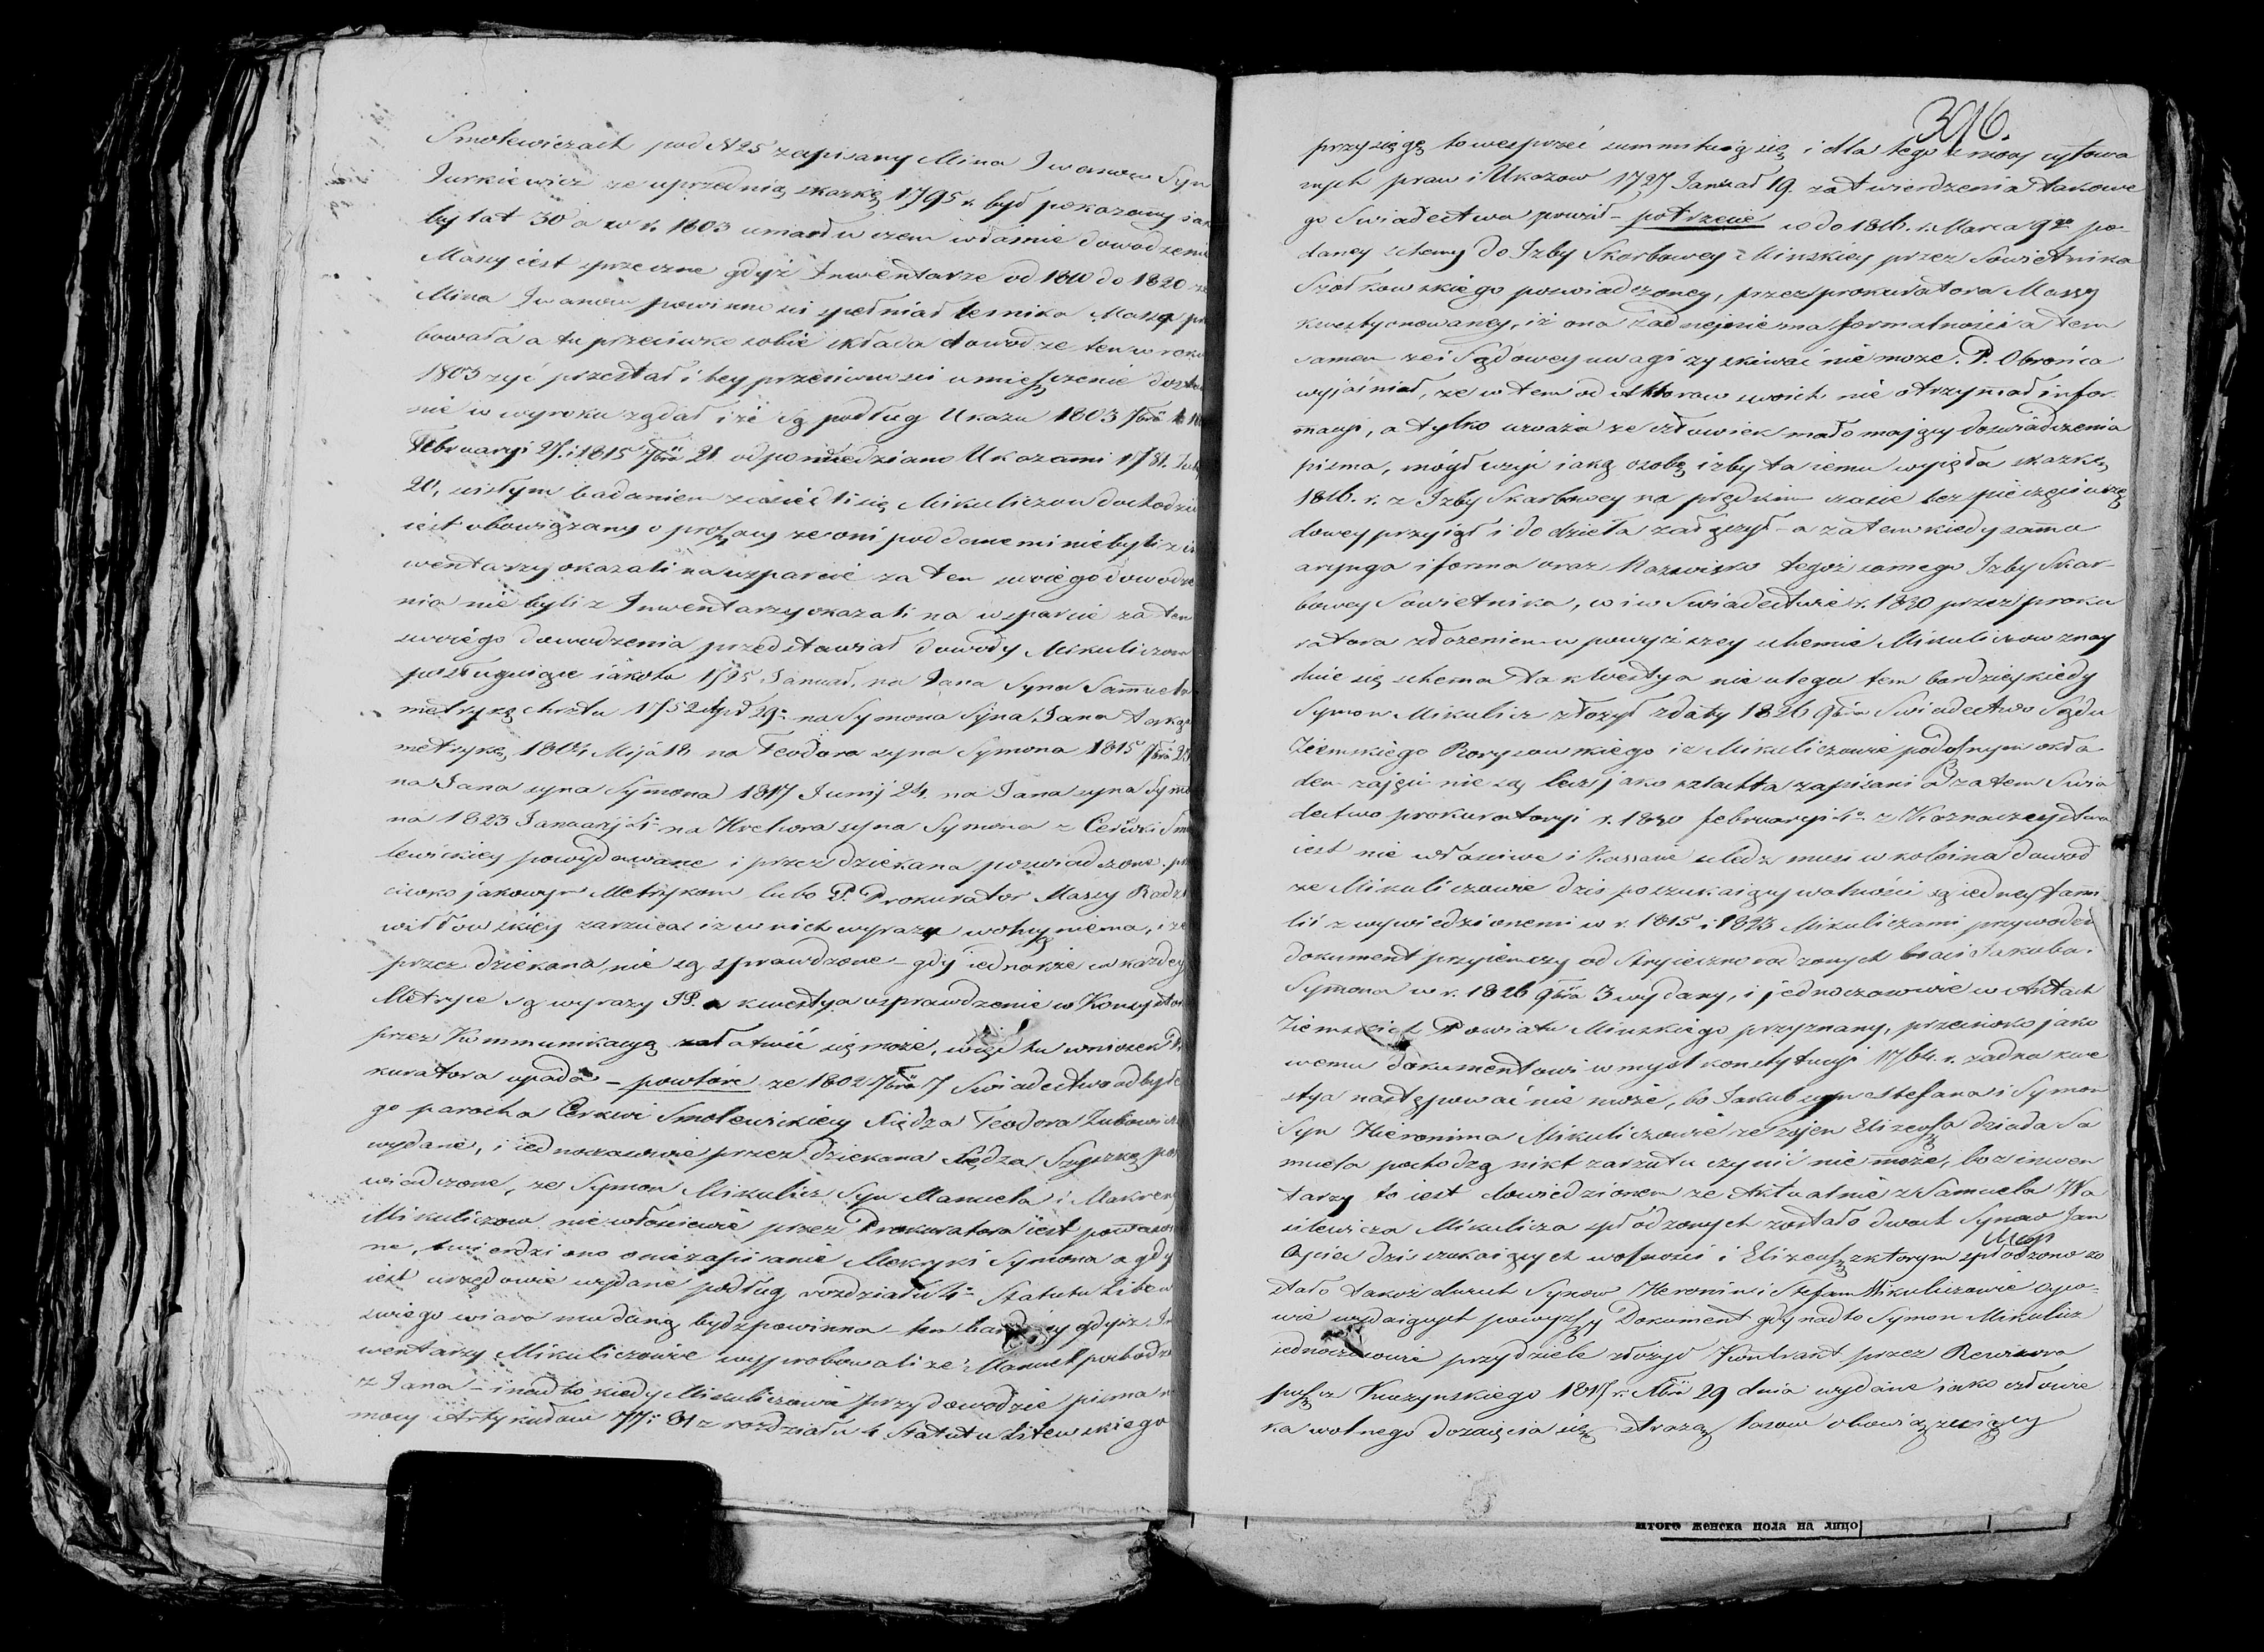 Smolewiczach pod N 25 zapisany Mina Iwanow Syn
Jurkiewicz ze uprzednią skazkę 1795 r. był pokazany
by lat 30 a w r. 1803 umarł w czem właśnie dowodzenie
Massy iest sprzeczne gdyż Inwentarze od 1810 do 1820
Mina Iwanow powinności spełniał leśnika Massa pro
bowała a tu przeciwko sobie składa dowod ze ten w roku
1803 żyć przestał i tey przeciwności umieszczenie
nie w wyroku żądał i że są podług Ukazu 1803 7bra
Februaryi 27. i 1815 7bra 21 odpowiedziano Ukazami 1781.
20, scisłym badaniem Mikuliczow dochodzić
iest obowiązany o proszący ze oni poddanemi niebyli z in
wentarzy okazali na wsparcie za tem swoiego dowodze
nia nie byli z Inwentarzy okazali na wsparcie za tem
swoiego dowodzenia przedstawiał dowody Mikuliczom
posługuiące iakoto 1795 Januar. na Jana Syna Samuela
metrykę chrztu 1752 29. na Symona Syna Jana takąż
metrykę, 1804 Maja 18. na Teodora syna Symona 1815 7bra 23
na Jana syna Symona 1817 Junij 24. na Jana syna Symo
na 1823 Januarij 4. na Hrehora syna Symona z Cerkwi Smo
lewickiey powydawane i przez dziekana poswiadczone. prze
ciwko jakowym Metrykom lubo P. Prokurator Massy Radzi
wiłłowskiey zarzucał iż w nich wyrazu wolny niema, i że
przez dziekana nie są sprawdzone – gdy iednakże w każdey
Metryce są wyrazy JP. a kwestya o sprawdzenie w Konsystor
przez Kommunikacyą załatwić się może, więc tu wniosek Pro
kuratora upada – powtóre ze 1802 7bra 7 Swiadectwo od byłe
go parocha Cerkwi Smolewickiey Xiędza Teodora Zubowicza
wydane, i iednoczasowie przez dziekana Xiędza Szyszkę pos
wiadczone, ze Symon Mikulicz Syn Manuela i Makreny
Mikuliczow niewłaściwie przez Prokuratora iest powa
ne, twierdzi ono Metryki Symona a gdy
iest urzędowie wydane podług rozdziału 4. Statutu Litew
skiego wiara mu daną bydz powinna – tem bardziey gdyż z In
wentarzy Mikuliczowie wyprobowali ze Manuel pochodzi
z Jana – i nadto kiedy Mikuliczowie przy dowodzie pisma
mocy Artykułow 77 i 81 z rozdziału 4 Statutu Litewskiego
306.
przysięgę to wesprzeć summituią się, i dla tego z mocy cytowa
nych praw i Ukazow 1727 Januar 19. zatwierdzenia takowe
go Swiadectwa prosił – potrzecie co do 1816. r. Marca 9go po-
daney schemy do Izby Skarbowey Minskiey przez Sowietnika
Szołkowskiego poswiadczoney, przez prokuratora Massy
kwestyonowaney, iż ona żadney niema formalności a tem
samem ze i Sądowey uwagi zyskiwać nie może. P. Obrońca
wyjaśniał, ze w tem od Aktorow swoich nie otrzymał infor-
macyi, a tylko uważa ze człowiek mało mający doświadczenia
pisma, mógł użyć iaką osobę iżby ta iemu wyjęła skazkę
1816. r. z Izby Skarbowey na prędkim czasie bez pieczęci urzę
dowey przyiął i do dzieła załączył – a zatem kiedy sama
arynga i forma oraz Nazwisko tegoż samego Izby Skar-
bowey Sowietnika, co i w Swiadectwie r. 1830 przez proku
ratora złożeniem w powyższey schemie Mikuliczow znay
duie się schema ta kwestya nie ulega tem bardziey kiedy
Symon Mikulicz złożył z daty 1826 9bra Swiadectwo Sądu
Ziemskiego Borysowskiego iż Mikuliczowie podusznym okła
dem zajęci nie są lecz jako szlachta zapisani a zatem Swia
dectwo prokuratoryi r. 1830 februaryi 4. z Kaznaczeystwa
iest nie właściwe i Kassacie uledz musi w koleina dowod
ze Mikuliczowie dziś poszukaiący wolności są iedney fami
lii z wywiedzionemi w r. 1815 i 1823 Mikuliczami przywodzi
dokument przyiemczy od stryieczno rodzonych braci Jakuba i
Symona w r. 1826 9bra 3 wydany, i jednoczasowie w Aktach
Ziemskich Powiatu Minskiego przyznany, przeciwko jako
wemu dokumentowi w myśl konstytucyi 1764. r. żadna kwe
stya następować nie może, bo Jakub syn Stefana i Symon
Syn Hieronima Mikuliczowie ze Elizeusza dziada Sa
muela pochodzą nikt zarzutu czynić nie może, bo z inwen
tarzy to iest dowiedzionem ze Aktualnie z Samuela Wa
silewicza Mikulicza spłodzonych zostało dwoch Synow Jan
Oyciec dziś szukaiących wolności i Elizeusz z ktorym spłodzono zo
stało takoż dwuch Synow Heronim i Stefan Mikuliczowie oyco-
wie wydaiących powyższy Dokument gdy nadto Symon Mikulicz
iednoczasowie przy dziele złożył Kontrakt przez Rewizora
lasu Kuczynskiego 1817 r. Xbra 29 dnia wydane iako człowie
ka wolnego dozaięcia się strażą lasow obowiązuiący
Итого женска пола на лицо